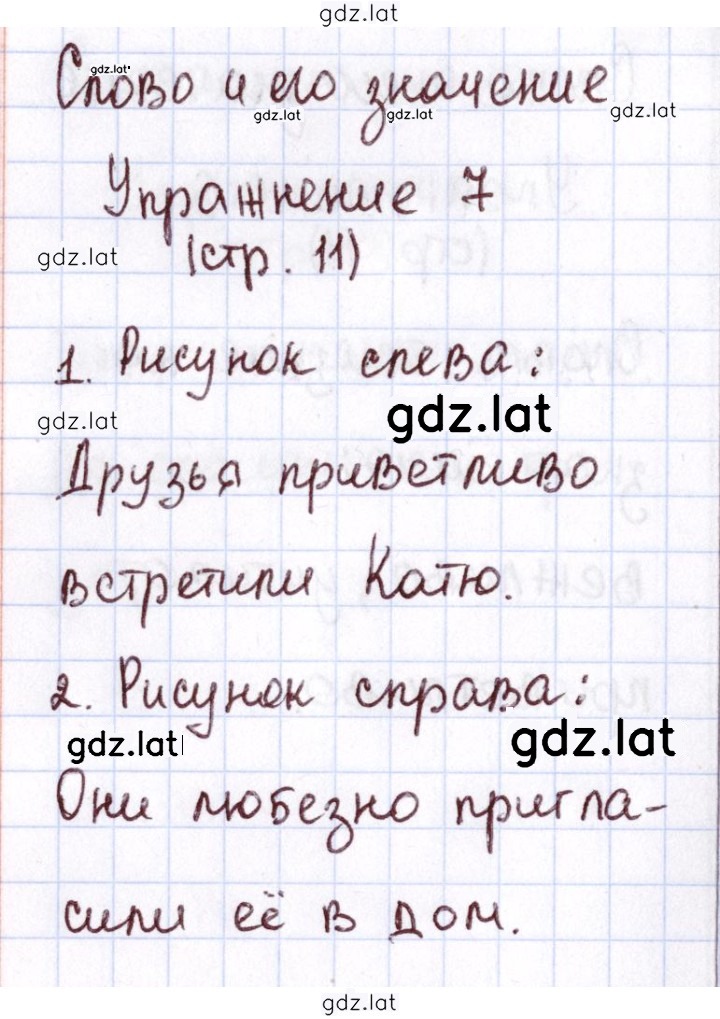 gdz.lat
Слово и его значение
gdz.lat
gdz.lat gdz.lat gdz.lat
Упражнение 7
gdz.lat (стр. 11)
1. Рисунок слева:
gdz.lat gdz.lat
Друзья приветливо
встретили Катю.
2. Рисунок справа:
gdz.lat gdz.lat
Они любезно пригла-
сили её в дом.
gdz.lat